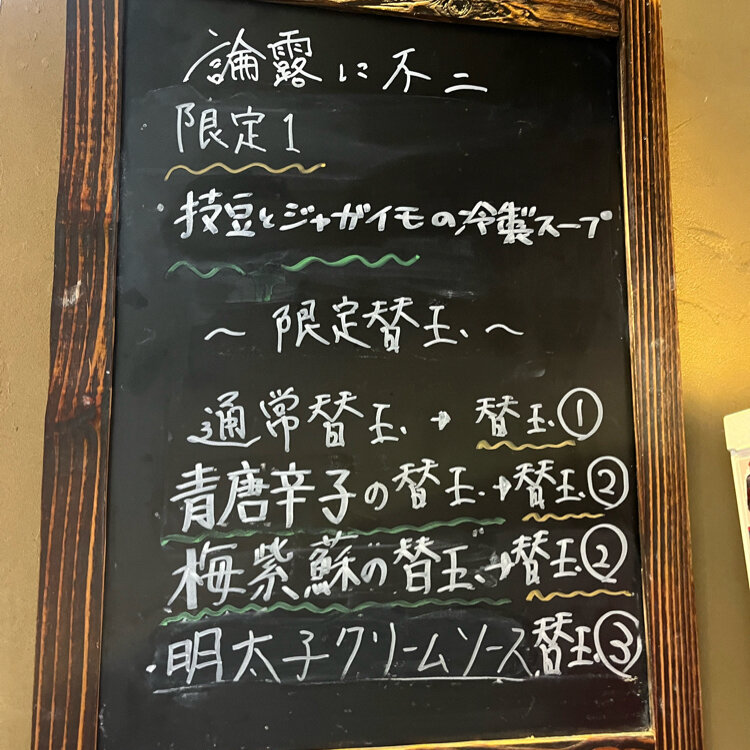 論露に不二
限定1
・枝豆とジャガイモの冷製スープ
～限定替玉～
通常替玉→替玉①
青唐辛子の替玉→替玉②
梅紫蘇の替玉→替玉②
・明太子クリームソース替玉③